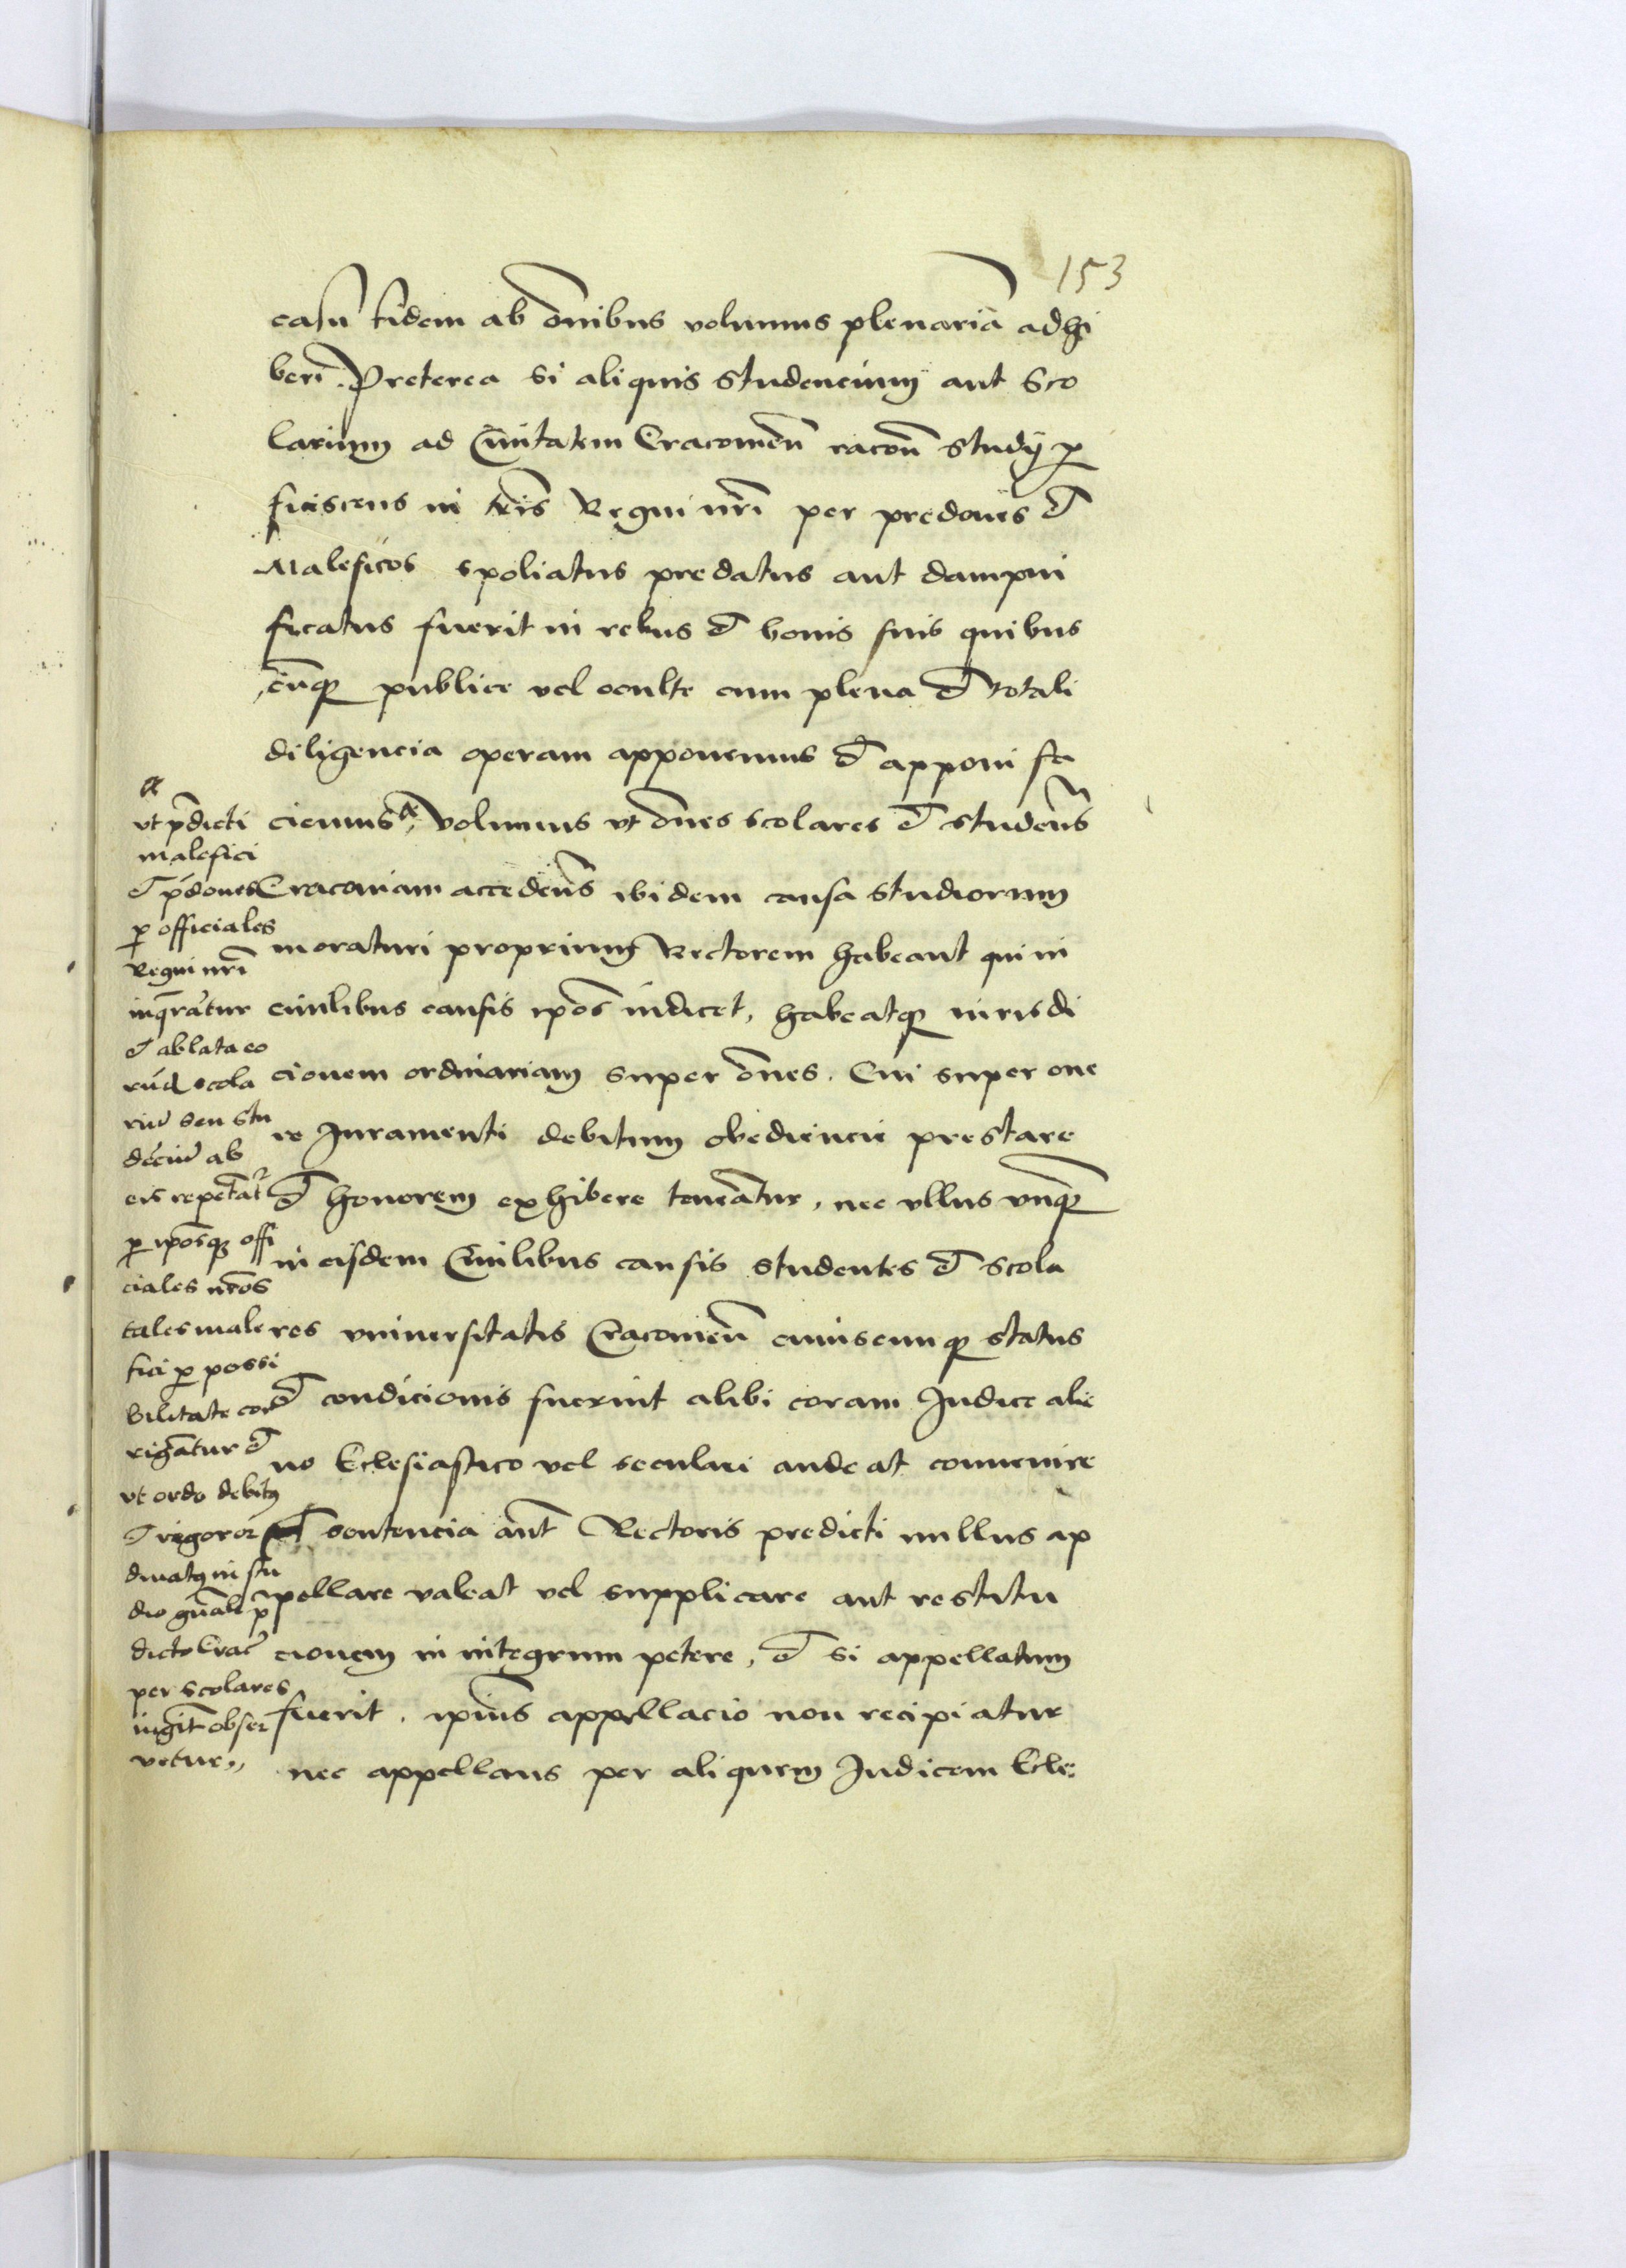 153
casu fidem ab oīnibus volumus plenariā adhi
beri. Preterea si aliquis studencium aut Sco
larium ad Ciuitatem Cracouień racōn studij ꝑ
ficiscens in tr̄is Regni nr̄i per predones et
Maleficos spoliatus predatus aut dampni
ficatus fuerit in rebus et bonis suis quibus
cūqꝫ publice vel oculte cum plena et totali
diligencia operam apponemus et apponi fa
ciemus, Volumus vt om̄es scolares et studeñs
Cracouiam accedeñs ibidem causa studiorum
moraturi proprium Rectorem habeant qui in
ciuilibus causis ip̄os iudicet, habeatqꝫ iurisdi
cionem ordinariam super om̄es. Cui super one
re Juramenti debitum obediencie prestare
et honorem exhibere teneātur, nec vllus vnqꝫ
in eisdem Ciuilibus causis studentes et scola
res vniuersitatis Cracouień cuiuscunqꝫ status
et condicionis fuerint alibi coram Judice alie
no Eclesiastico vel seculari audeat conuenire
sentencia aut̄ Rectoris predicti nullus ap
pellare valeat vel supplicare aut restitu
cionem in integrum petere, et si appellatum
fuerit, ip̄ius appellacio non recipiatur
nec appellans per aliquem Judicem Ecle:
vt p̄dicti
malefici
et p̄dones
ꝑ officiales
Regni nr̄i
inq̄rātur
et ablata eo
rūd scola
riū seu stu
dēciū ab
eis repetāt᷑
ꝑ ip̄osqꝫ offi
ciales nr̄os
tales male
fici ꝑ possi
bilitate cor
rigātur et
vt ordo debitꝰ
et rigoror
dinatꝰ in stu
dio gn̄ali p̄
dicto Crac̄
per scolares
iugit̄ obser
vetur,,